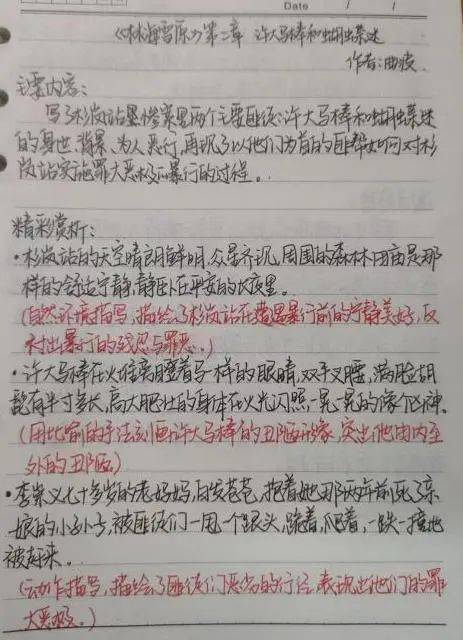 Date / /
《林海雪原》第二章 许大马棒和蝴蝶迷
作者:曲波.
主要内容:
写了杉岚站墨惨案里两个主要匪徒:许大马棒和蝴蝶迷
的身世、背景、为人恶行,再现了以他们为首的匪帮如何对杉
岚站实施罪大恶极的暴行的过程。
精彩赏析:
·杉岚站的天空晴朗鲜明,众星齐现,周围的森林田亩是那
样的舒适宁静,静卧在平安的长夜里。
(自然环境描写,描绘了杉岚站在遭遇暴行前的宁静美好,反
衬出暴行的残忍与罪大.)
·许大马棒在火堆旁瞪着马一样的眼睛,双手叉腰,满脸胡
髭有半寸多长,高大肥壮的身体在火光闪照一晃一晃的像凶神.
(用比喻的手法刻画许大马棒的丑陋形象,突出他由内至
外的丑陋)
·李荣义七十多岁的老妈妈,白发苍苍,抱着她那两年前死了亲
娘的小孙子,被匪徒们一甩一个跟头,跪着,爬着,一跌一撞地
被赶来。
(动作描写,描绘了匪徒们恶劣的行径,表现出他们的罪
大恶极.)